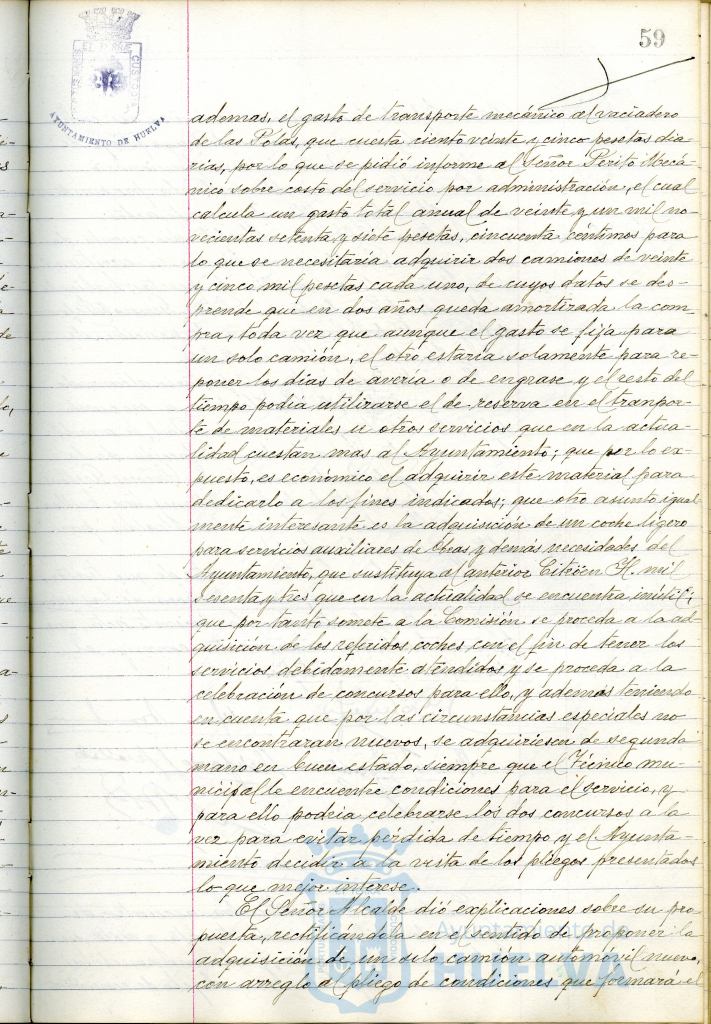 59
AYUNTAMIENTO DE HUELVA
ademas, el gasto de transporte mecánico al vaciadero
de las Polas, que cuesta ciento veinte y cinco pesetas dia
rias, por lo que se pidió informe al Señor Perito Mecá-
nico sobre costo del servicio por administración, el cual
calcula un gasto total anual de veinte y un mil no-
vecientas setenta y siete pesetas, cincuenta céntimos para
lo que se necesitaria adquirir dos camiones de veinte
y cinco mil pesetas cada uno, de cuyos datos se des-
prende que en dos años queda amortizada la com-
pra, toda vez que aunque el gasto se fija para
un solo camión, el otro estaria solamente para re-
poner los dias de averia o de engrase y el resto del
tiempo podia utilizarse el de reserva en el tranpor-
te de materiales u otros servicios que en la actua-
lidad cuestan mas al Ayuntamiento; que por lo ex-
puesto, es económico el adquirir este material para
dedicarlo a los fines indicados; que otro asunto igual
mente interesante es la adquisición de un coche ligero
para servicios auxiliares de Obras y demás necesidades del
Ayuntamiento, que sustituya al anterior Citröen H. mil
sesenta y tres que en la actualidad se encuentra inutil;
que por tanto somete a la Comisión se proceda a la ad-
quisición de los referidos coches con el fin de tener los
servicios debidamente atendidos y se proceda a la
celebración de concursos para ello, y ademas teniendo
en cuenta que por las circunstancias especiales no
se encontraran nuevos, se adquiriesen de segunda
mano en buen estado, siempre que el Técnico mu-
nicipal le encuentre condiciones para el servicio, y
para ello podria celebrarse los dos concursos a la
vez para evitar pérdida de tiempo y el Ayunta-
miento decidir a la vista de los pliegos presentados
lo que mejor interese.
El Señor Alcalde dió explicaciones sobre su pro
puesta, rectificándola en el sentido de proponer la
adquisición de un solo camión automóvil nuevo,
con arreglo al pliego de condiciones que formará el
Ayuntamiento de
HUELVA